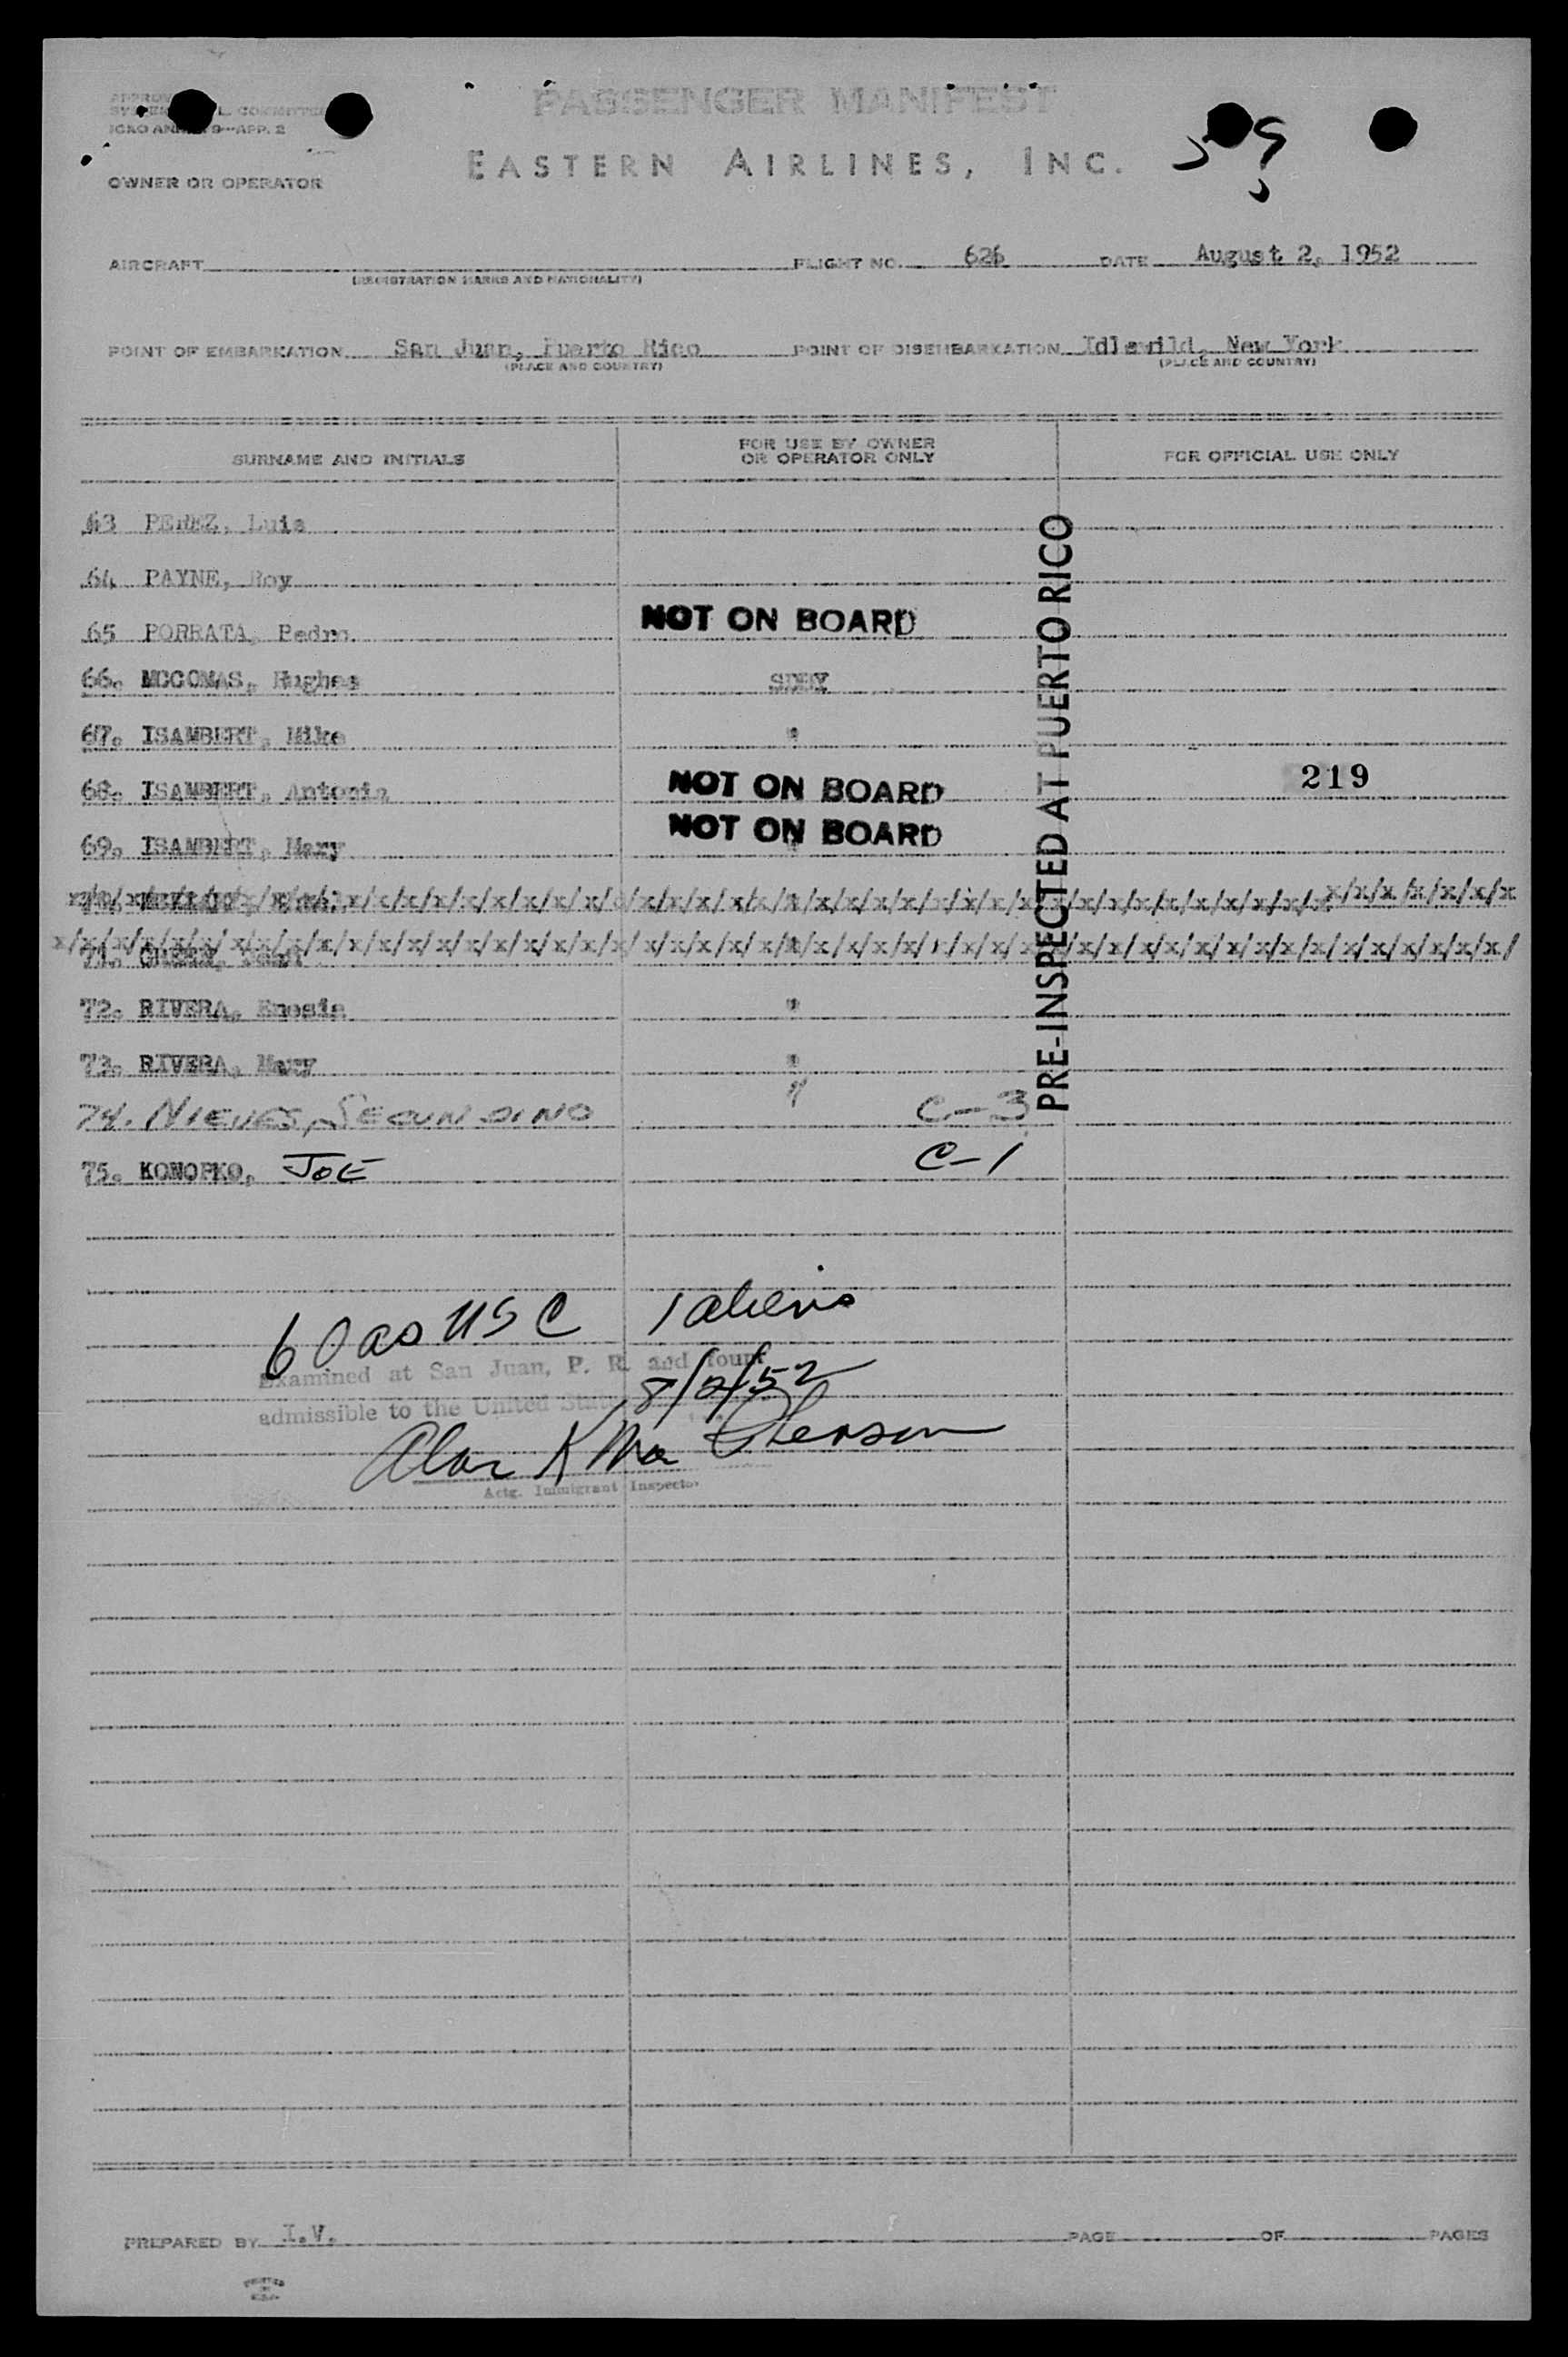 PASSENGER MANIFEST
ICAO ANNEX 9—APP. 2
EASTERN AIRLINES, INC.
59
OWNER OR OPERATOR
AIRCRAFT FLIGHT NO. 626 DATE August 2, 1952
(REGISTRATION MARKS AND NATIONALITY)
POINT OF EMBARKATION San Juan, Puerto Rico POINT OF DISEMBARKATION Idlewild, New York
(PLACE AND COUNTRY) (PLACE AND COUNTRY)
SURNAME AND INITIALS FOR USE BY OWNER OR OPERATOR ONLY FOR OFFICIAL USE ONLY
63 PEREZ, Luis
64 PAYNE, Roy
65 PORRATA, Pedro NOT ON BOARD
66. MCCOMAS, Hughes
67. ISAMBERT, Mike "
68. ISAMBERT, Antonia NOT ON BOARD 219
69. ISAMBERT, Mary NOT ON BOARD
71.
72. RIVERA, "
73. RIVERA, Mary "
74. NIEVES, SECUNDINO " C-3
75. KONOPKO, JOE C-1
PRE-INSPECTED AT PUERTO RICO
60 as USC 1 aliens
Examined at San Juan, P. R. and found
8/2/52
admissible to the United States
Alan K MacPherson
Actg. Immigrant Inspector
PREPARED BY I.V. PAGE OF PAGES
PRINTED IN U.S.A.